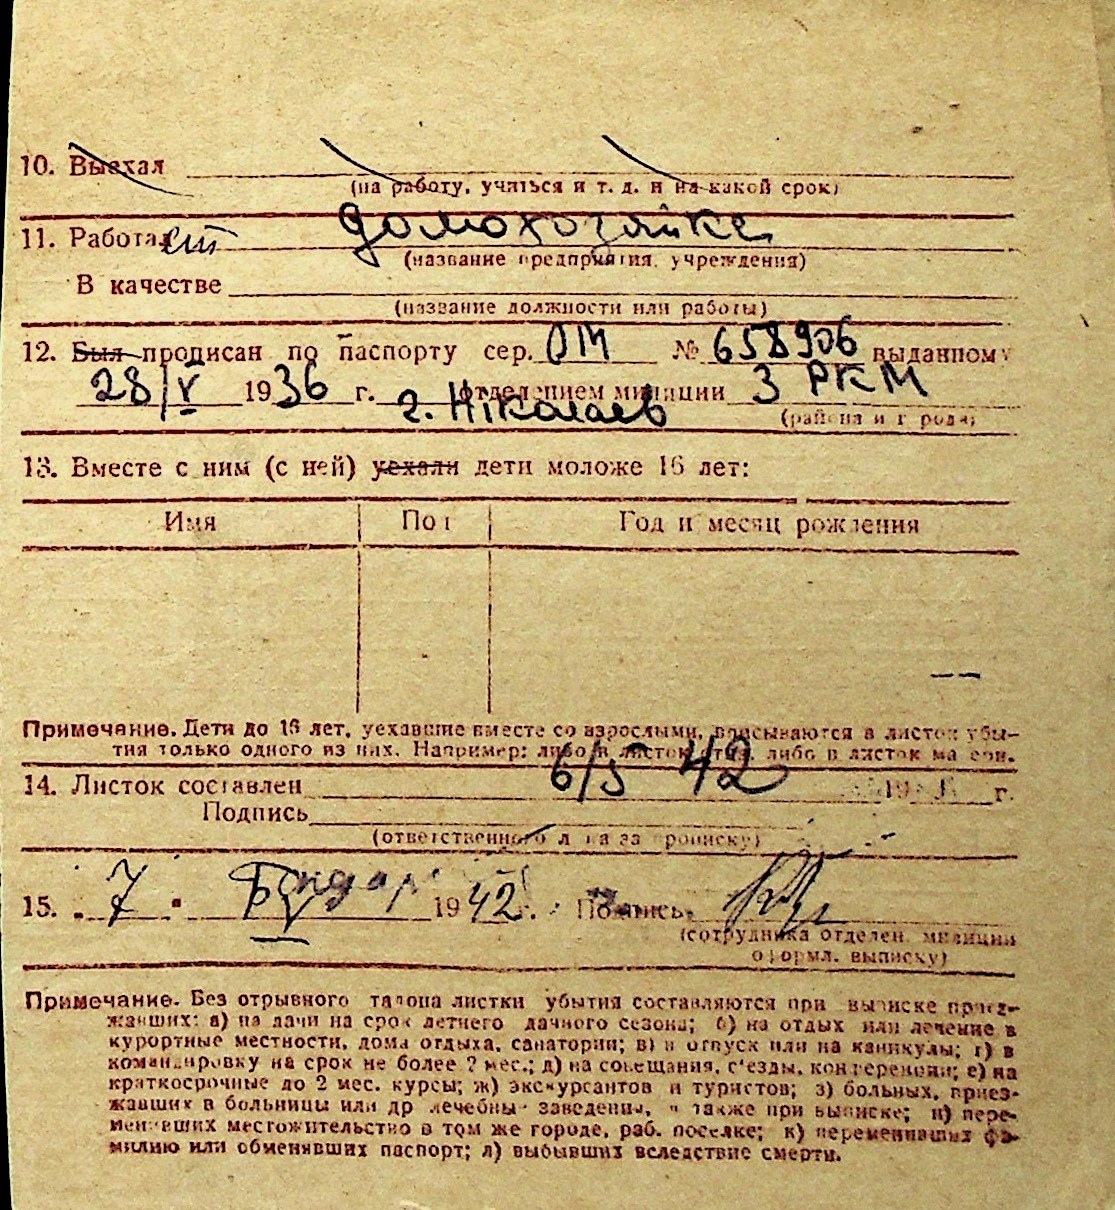 10. Выехал
(на работу, учиться и т. д. и на какой срок)
11. Работает домохозяйке
(название предприятия, учреждения)
В качестве
(название должности или работы)
12. Был прописан по паспорту сер. ОМ № 658906 выданному
28/V 1936 г. отделением милиции 3 РКМ
г.Ніколаев
(района и города)
13. Вместе с ним (с ней) уехали дети моложе 16 лет:
Имя Пол Год и месяц рождения
Примечание. Дети до 16 лет, уехавшие вместе со взрослыми, вписываются в листок убы-
тия только одного из них. Например: либо в листок отца, либо в листок матери.
14. Листок составлен 6/5 42 19 г.
Подпись
(ответственного лица за прописку)
15. 7 1942 г. Подпись
(сотрудника отделен. милиции
оформл. выписку)
Примечание. Без отрывного талона листки убытия составляются при выписке приез-
жавших: а) на дачи на срок летнего дачного сезона; б) на отдых или лечение в
курортные местности, дома отдыха, санатории; в) в отпуск или на каникулы; г) в
командировку на срок не более 2 мес.; д) на совещания, с'езды, конференции; е) на
краткосрочные до 2 мес. курсы; ж) экскурсантов и туристов; з) больных, приез-
жавших в больницы или др лечебные заведения, а также при выписке; и) пере-
менивших местожительство в том же городе, раб. поселке; к) переменивших фа-
милию или обменявших паспорт; л) выбывших вследствие смерти.